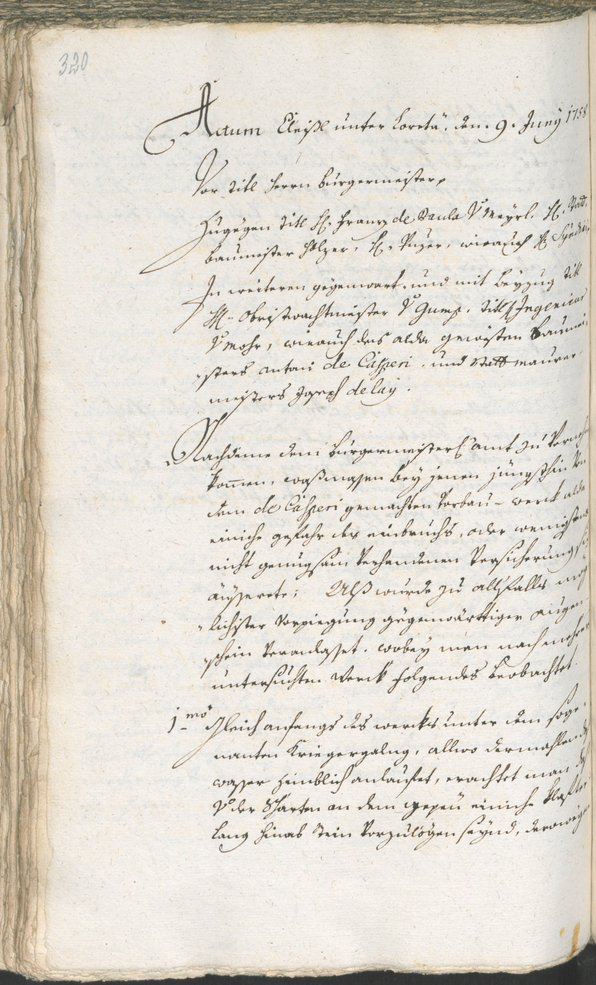 320
Actum Eleißl unter Loretä. den 9. Juny 1758
Vor titl Herrn Burgermeister,
Zugegen titl H. Franz de Paula V. Mayrl. H. Statt
baumeister Holzer, H. Purer, wie auch H. Syndicus
In weiteren gegenwart, und mit beyzug titl
H. Obristwachtmeister V. Gump. titl Ingenieur
V. Mohr, wie auch des alda gewesten Baumei
sters Antoni de Cässperi, und Stattmaurer
meisters Joseph Delay.
Nachdeme dem Burgermeister Amt zu Verneh
kommen, waßmassen bey jenen jüngsthin Von
dem de Cässperi gemachten Vorbau-werck alda
einiche gefahr des einbruchs, oder wenigstens
nicht genugsam Verhandenen Versicherung sich
äüsserete; Alß wurde zu allfalls mög
lichster Vorpiegung gegenwärttiger augen
schein Veranlasset. wobey man nach mehre
untersuchten Werck folgendes beobachtet.
1mo Gleich anfangs des wercks unter dem soge
nanten Kriegergalng, allwo dermahlen das
wasser hindlich anlauffet, erachtet man, daß
V. der Scharten an dem gegen einiche Klaffter
lang hinab Stein Vorzulögen seynd, derowegen